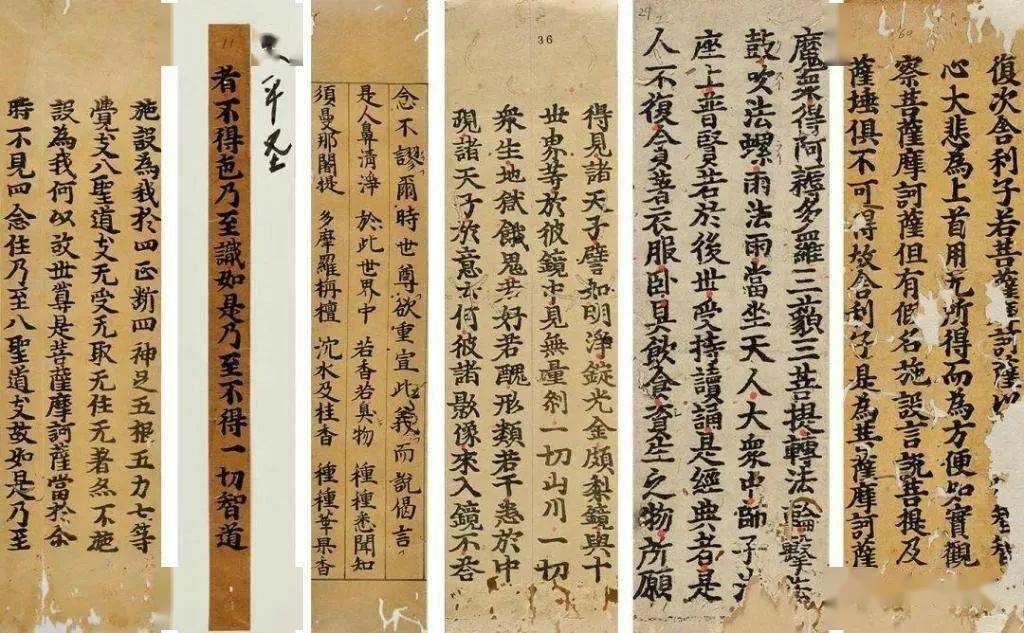 60
復次舍利子若菩薩摩訶薩以智
心大悲為上首用无所得而為方便如實觀
察菩薩摩訶薩但有假名施設言說菩提及
薩埵俱不可得故舍利子是為菩薩摩訶薩
29
魔衆得阿耨多羅三藐三菩提轉法輪擊法
鼓吹法螺雨法雨當坐天人大衆中師子法
座上普賢若於後世受持讀誦是經典者是
人不復貪著衣服卧具飲食資生之物所願
36
得見諸天子譬如明淨錠光金頗梨鏡與十
世界等於彼鏡中見無量刹一切山川一切
衆生地獄餓鬼若好若醜形類若干悉於中
現諸天子於意云何彼諸影像來入鏡不答
念不謬爾時世尊欲重宣此義而說偈言
是人鼻清淨 於此世界中 若香若臭物 種種悉聞知
須曼那闍提 多摩羅栴檀 沉水及桂香 種種華果香
11
者不得色乃至識如是乃至不得一切智道
施設為我於四正斷四神足五根五力七等
覺支八聖道支无受无取无住无著亦不施
設為我何以故世尊是菩薩摩訶薩當於尒
時不見四念住乃至八聖道支故如是乃至